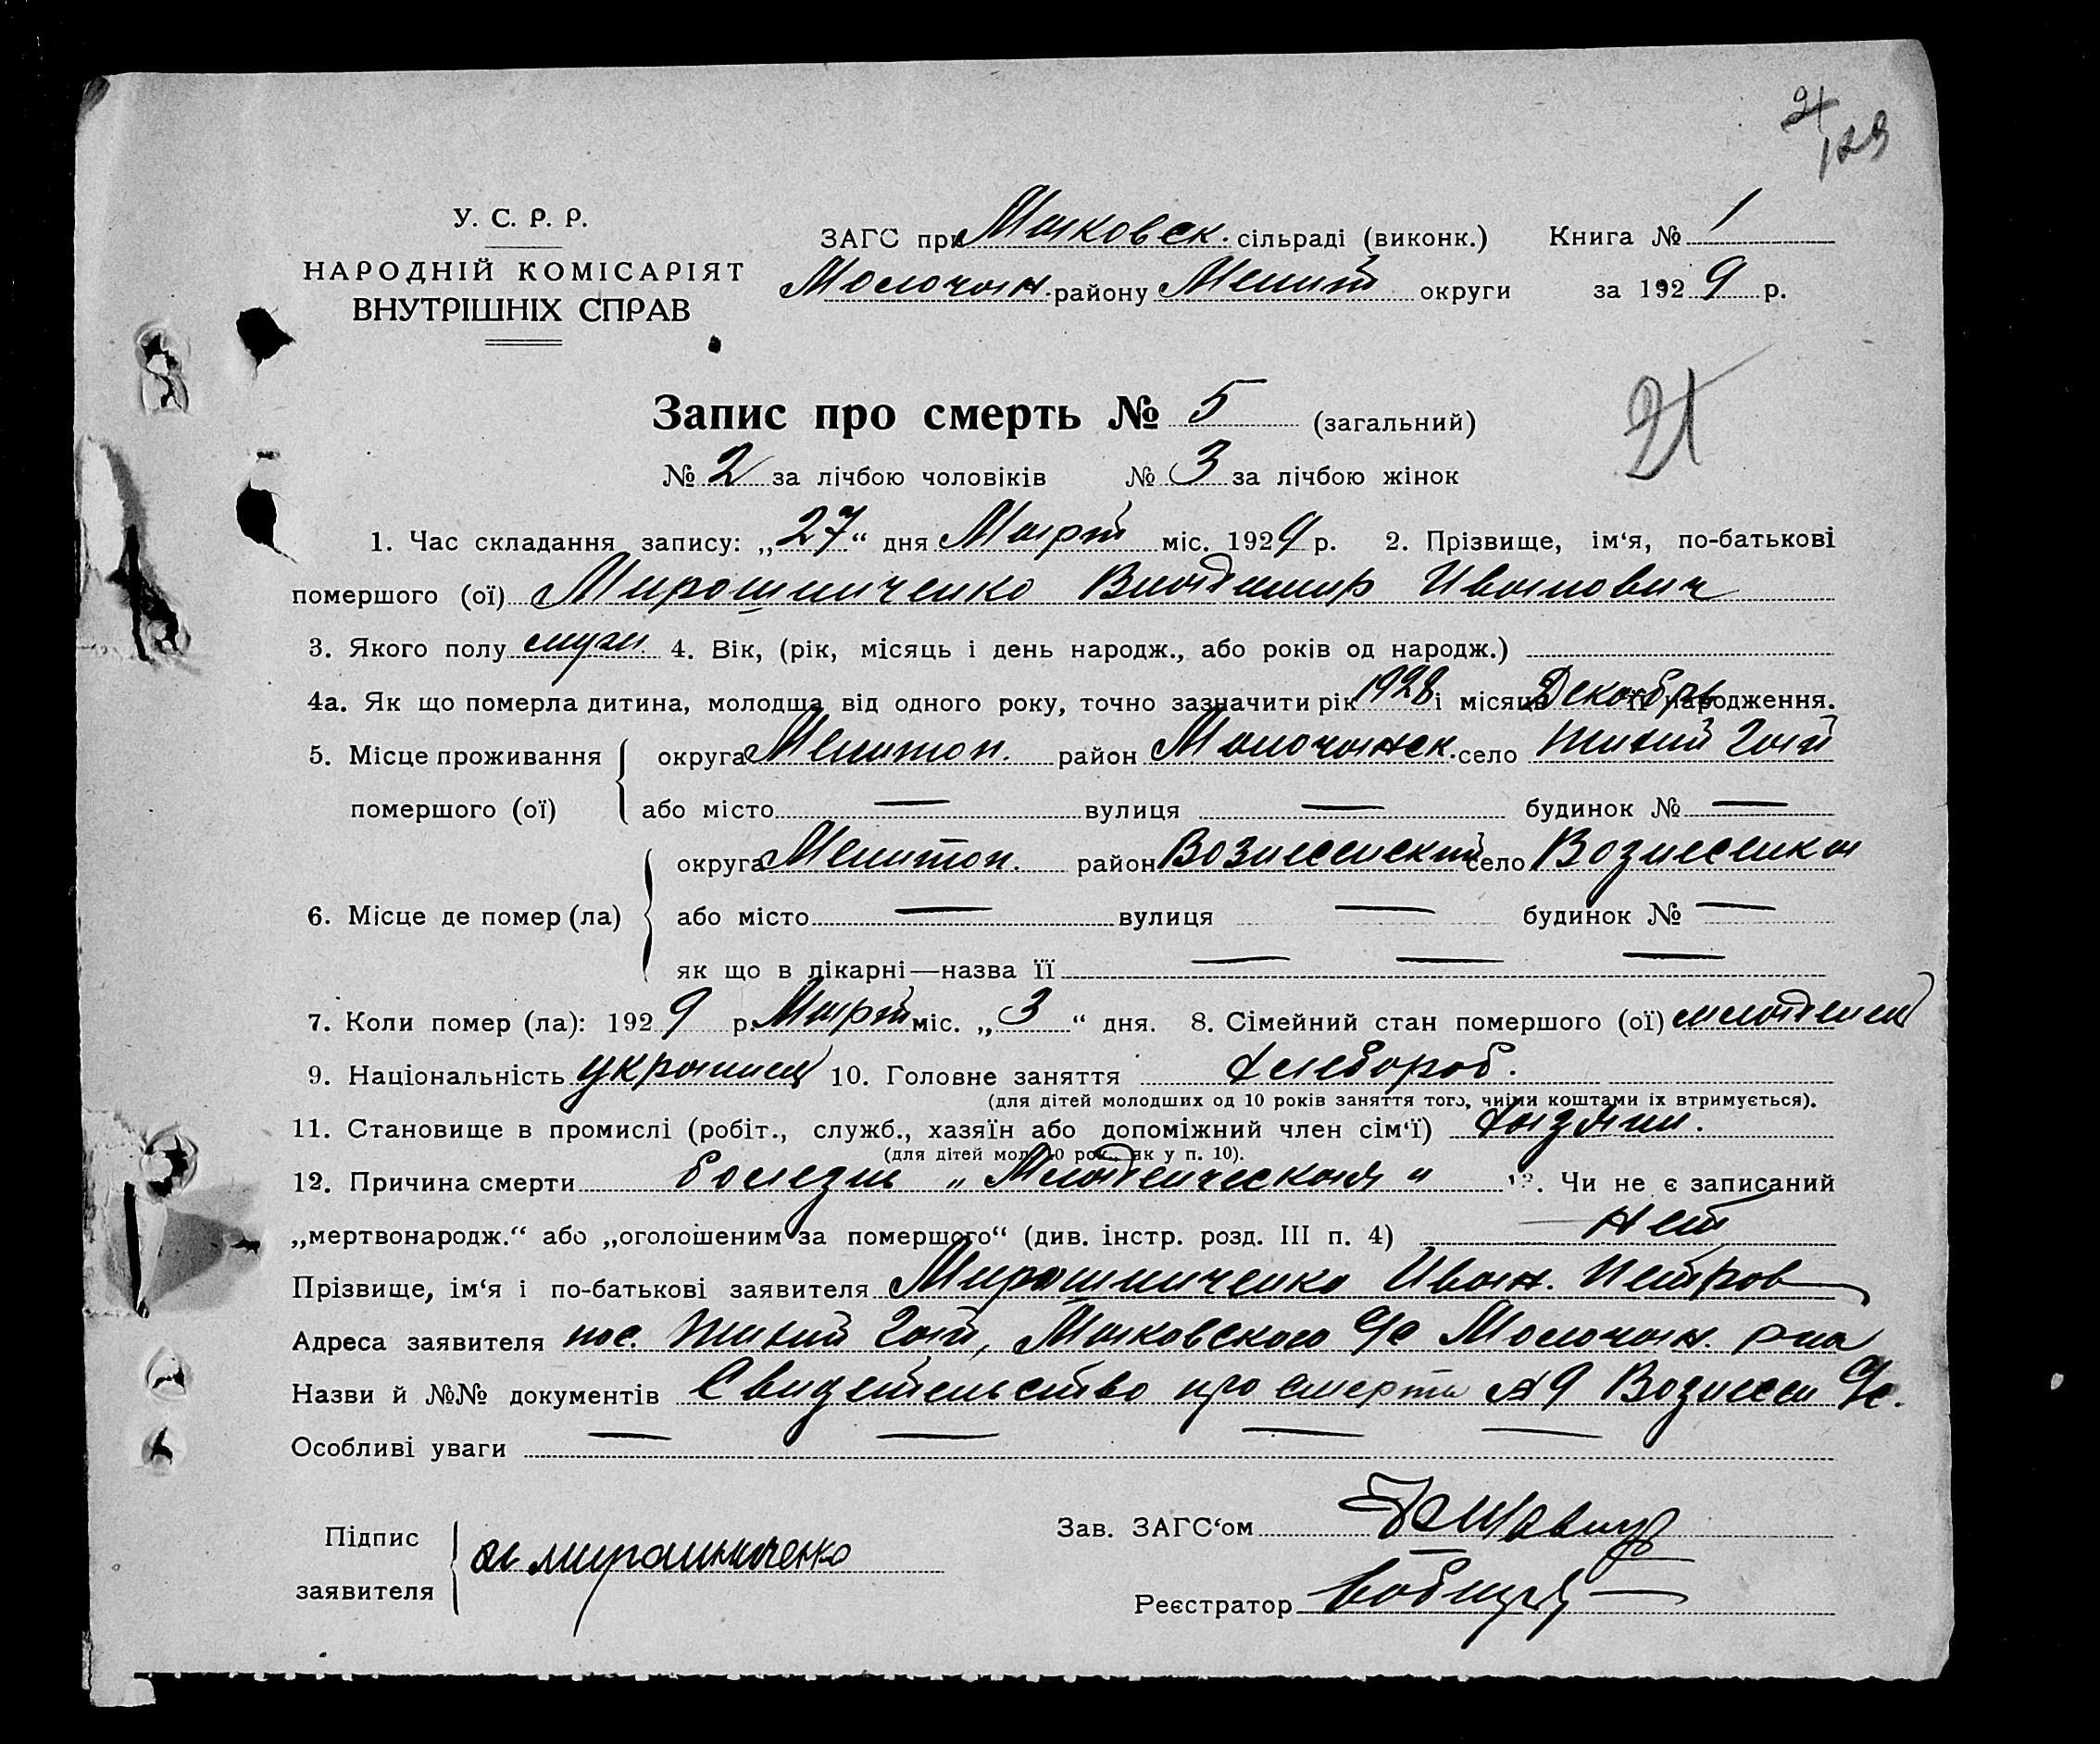 21
129
У. С. Р. Р.
НАРОДНІЙ КОМІСАРІЯТ
ВНУТРІШНІХ СПРАВ
ЗАГС при Маковск. сільраді (виконк.) Книга № 1
Молочан. району Мелит округи за 1929 р.
Запис про смерть № 5 (загальний)
21
№ 2 за лічбою чоловіків № 3 за лічбою жінок
1. Час складання запису: „27“ дня Март міс. 1929 р. 2. Прізвище, ім‘я, по-батькові
помершого (ої) Мирошниченко Владимир Иванович
3. Якого полу муж. 4. Вік, (рік, місяць і день народж., або років од народж.)
4а. Як що померла дитина, молодша від одного року, точно зазначити рік 1928 і місяць Декабрь її народження.
5. Місце проживання помершого (ої) округа Мелитоп. район Молочанск. село Тихий Гай
або місто — вулиця — будинок № —
6. Місце де помер (ла) округа Мелитоп. район Вознесенский село Вознесенка
або місто — вулиця — будинок № —
як що в лікарні—назва її — — —
7. Коли помер (ла): 1929 р. Март міс. „3“ дня. 8. Сімейний стан помершого (ої) младенец
9. Національність украинец 10. Головне заняття хлебороб.
(для дітей молодших од 10 років заняття того, чиїми коштами їх втримується).
11. Становище в промислі (робіт., служб., хазяїн або допоміжний член сім‘ї) хазяин.
(для дітей мол. 10 рок., як у п. 10).
12. Причина смерти болезнь „Младенческая“ 13. Чи не є записаний
„мертвонародж.“ або „оголошеним за помершого“ (див. інстр. розд. III п. 4) нет
Прізвище, ім‘я і по-батькові заявителя Мирошниченко Иван. Петров
Адреса заявителя пос. Тихий Гай, Маковского с/с Молочан. р-на
Назви й №№ документів Свидетельство про смерть №9 Вознесен с/с.
Особливі уваги — — — —
Підпис заявителя Мирошниченко
Зав. ЗАГС‘ом
Реєстратор